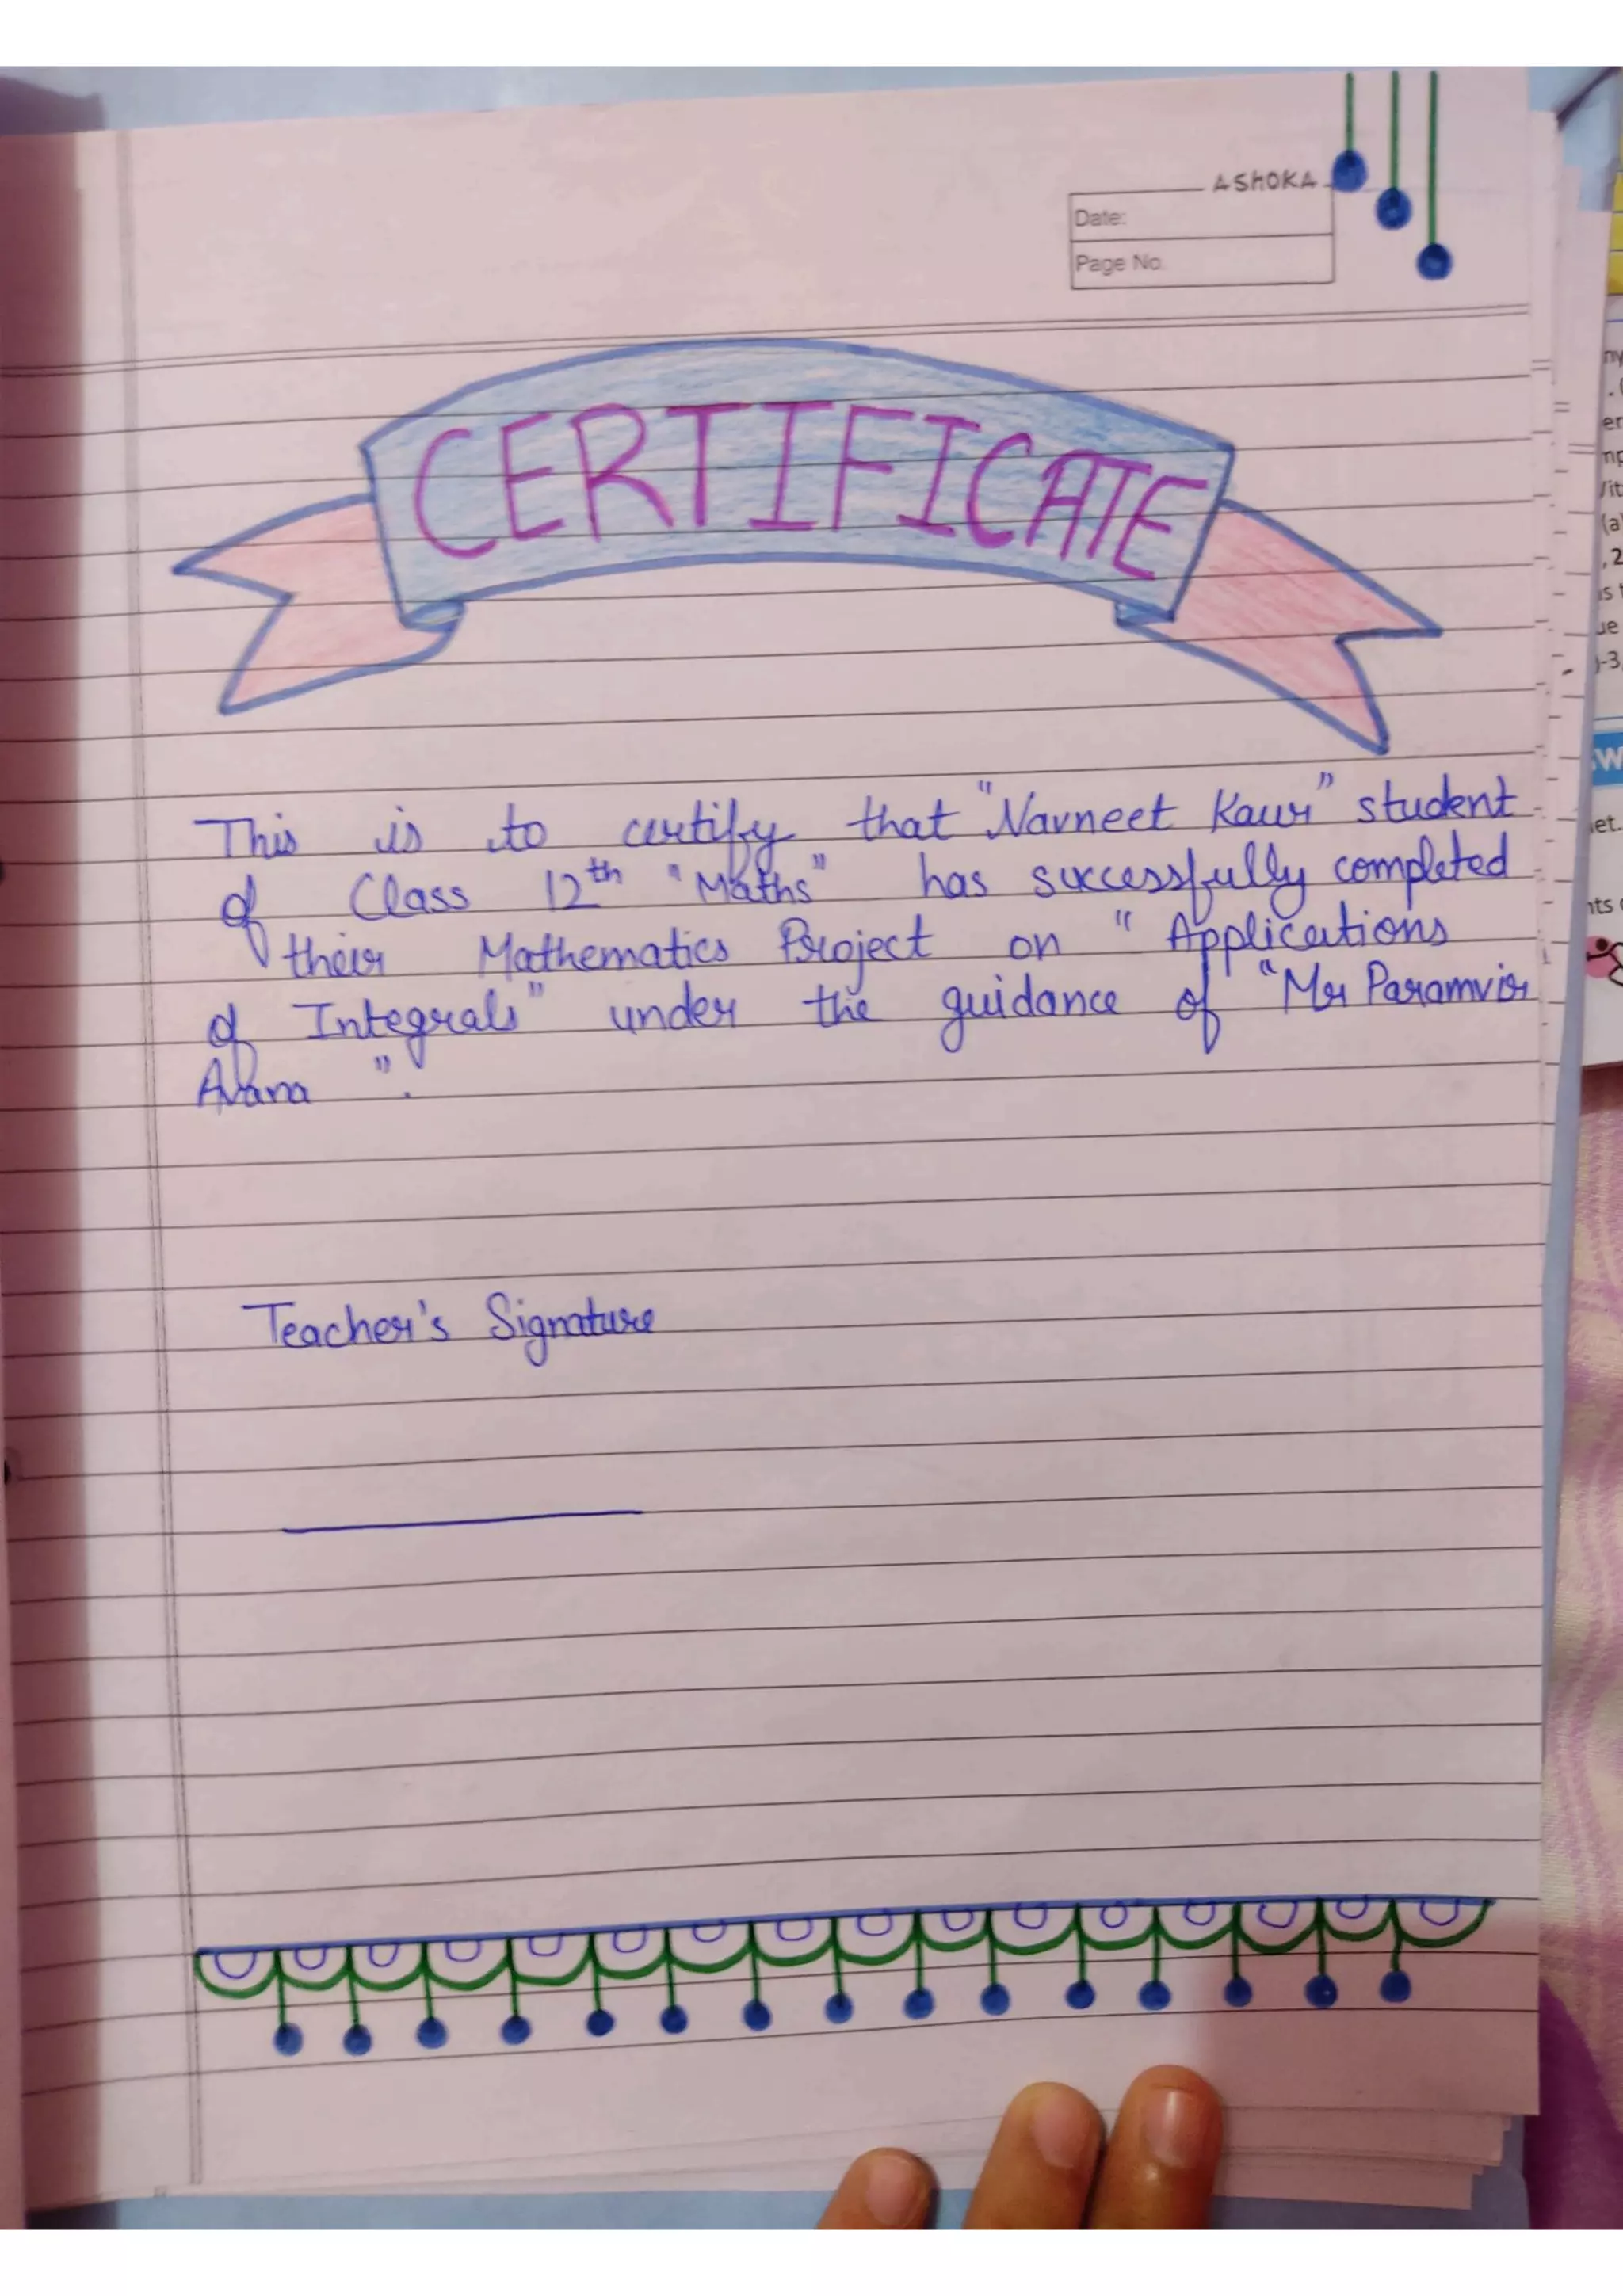 ASHOKA
Date:
Page No.
CERTIFICATE
This is to certify that "Navneet Kaur" student
of Class 12th "Maths" has successfully completed
their Mathematics Project on "Applications
of Integrals" under the guidance of "Mr Paramvir
".
Teacher's Signature